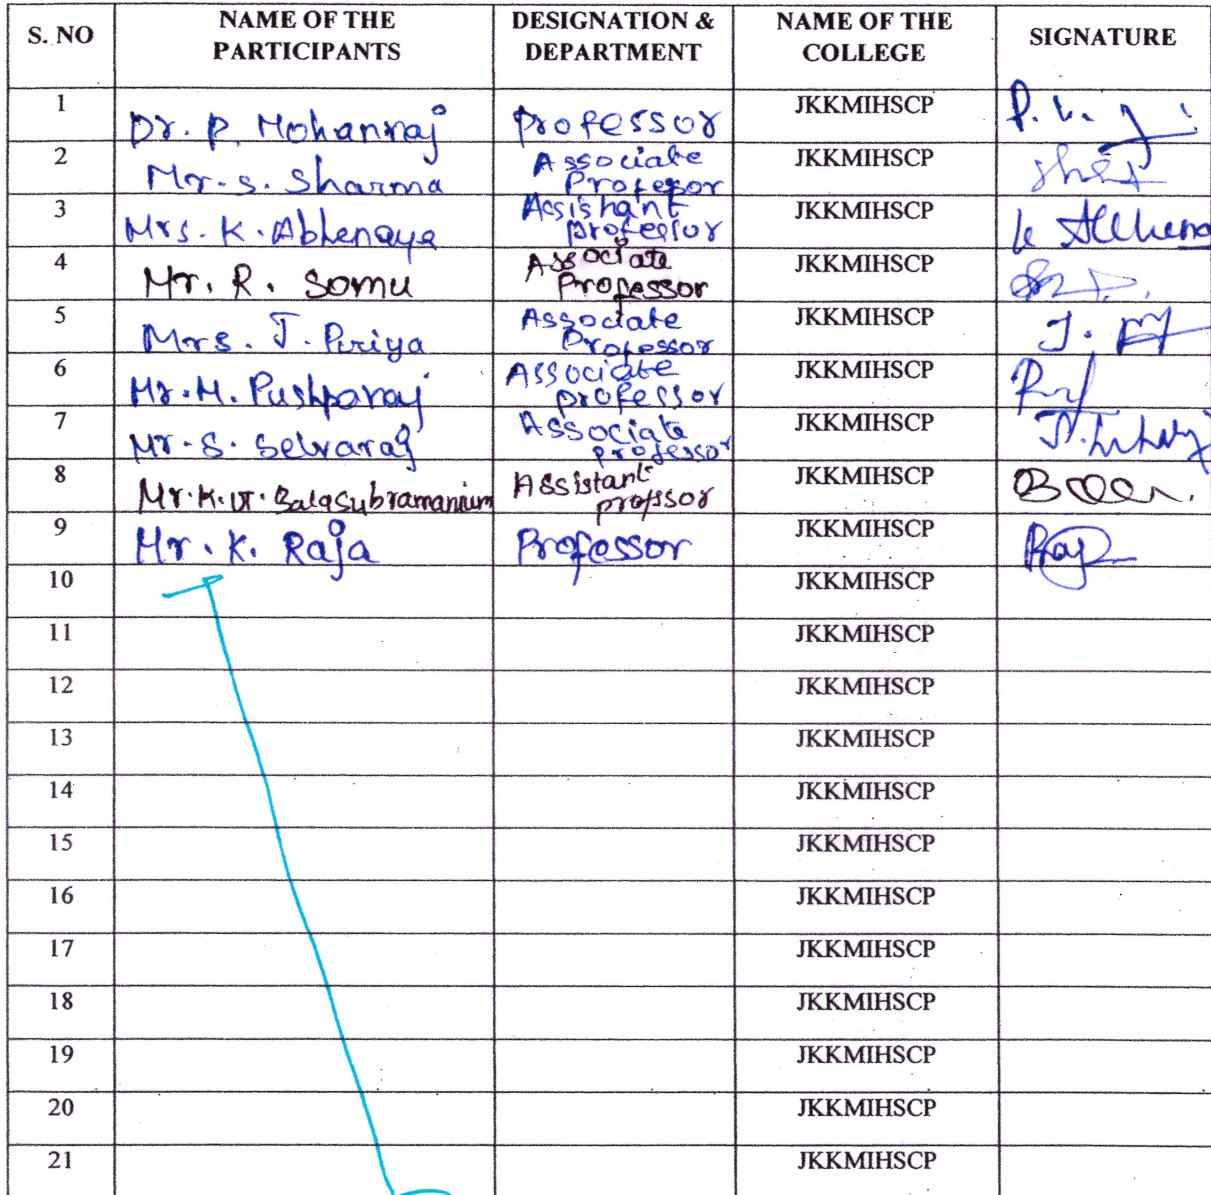 S. NO NAME OF THE PARTICIPANTS DESIGNATION & DEPARTMENT NAME OF THE COLLEGE SIGNATURE
1 Dr. P. Mohanraj Professor JKKMIHSCP
2 Mr. S. Sharma Associate Profesor JKKMIHSCP
3 Mrs. K. Abhenaya Assistant professor JKKMIHSCP
4 Mr. R. Somu Associate Professor JKKMIHSCP
5 Mrs. J. Piriya Associate Professor JKKMIHSCP
6 Mr. M. Pushparaj Associate professor JKKMIHSCP
7 Mr. S. Selvaraj Associate professor JKKMIHSCP
8 Mr. K. Balasubramanium Assistant profssor JKKMIHSCP
9 Mr. K. Raja Professor JKKMIHSCP
10 JKKMIHSCP
11 JKKMIHSCP
12 JKKMIHSCP
13 JKKMIHSCP
14 JKKMIHSCP
15 JKKMIHSCP
16 JKKMIHSCP
17 JKKMIHSCP
18 JKKMIHSCP
19 JKKMIHSCP
20 JKKMIHSCP
21 JKKMIHSCP